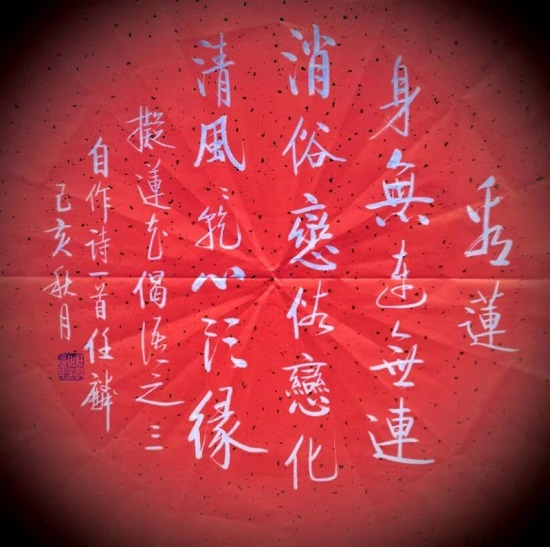 蓮
身無無連
消俗戀戀化
清風心緣
擬蓮花偈語之三
自作詩一首任麟
己亥秋月